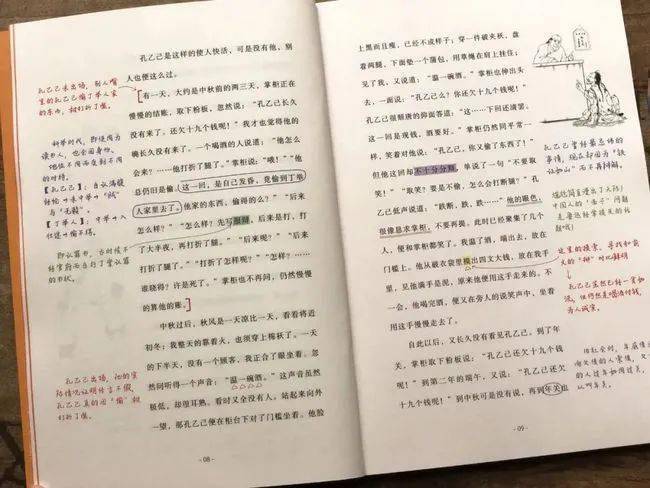 孔乙己是这样的使人快活，可是没有他，别
人也便这么过。
有一天，大约是中秋前的两三天，掌柜正在
慢慢的结账，取下粉板，忽然说：“孔乙己长久
没有来了。还欠十九个钱呢！”我才也觉得他的
确长久没有来了。一个喝酒的人说道：“他怎么
会来？……他打折了腿了。”掌柜说：“哦！”“他
总仍旧是偷。这一回，是自己发昏，竟偷到丁举
人家里去了。他家的东西，偷得的么？”“后来
怎么样？”“怎么样？先写服辩，后来是打，打
了大半夜，再打折了腿。”“后来呢？”“后来
打折了腿了。”“打折了怎样呢？”“怎样？……
谁晓得？许是死了。”掌柜也不再问，仍然慢慢
的算他的账。
中秋过后，秋风是一天凉比一天，看看将近
初冬；我整天的靠着火，也须穿上棉袄了。一天
的下半天，没有一个顾客，我正合了眼坐着。忽
然间听得一个声音：“温一碗酒。”这声音虽然
极低，却很耳熟。看时又全没有人。站起来向外
一望，那孔乙己便在柜台下对了门槛坐着。他脸
- 08 -
孔乙己未出场，别人嘴
里的孔乙己偷丁举人家
的东西，被打折了腿。
科举时代，即便同为
读书人，也会因身份、
地位不同而受到不同
的对待。
【孔乙己】：
【丁举人】：中举→入
孔乙己出场，他的实
际情况证明传言不假，
孔乙己真的因“偷”被
打折了腿。
上黑而且瘦，已经不成样子；穿一件破夹袄，盘
着两腿，下面垫一个蒲包，用草绳在肩上挂住；
见了我，又说道：“温一碗酒。”掌柜也伸出头
去，一面说：“孔乙己么？你还欠十九个钱呢！”
孔乙己很颓唐的仰面答道：“这……下回还清罢。
这一回是现钱，酒要好。”掌柜仍然同平常一
样，笑着对他说：“孔乙己，你又偷了东西了！”
但他这回却不十分分辩，单说了一句“不要取
笑！”“取笑？要是不偷，怎么会打断腿？”孔
乙己低声说道：“跌断，跌，跌……”他的眼色，
很像恳求掌柜，不要再提。此时已经聚集了几个
人，便和掌柜都笑了。我温了酒，端出去，放在
门槛上。他从破衣袋里摸出四文大钱，放在我手
里，见他满手是泥，原来他便用这手走来的。不
一会，他喝完酒，便又在旁人的说笑声中，坐着
用这手慢慢走去了。
自此以后，又长久没有看见孔乙己。到了年
关，掌柜取下粉板说：“孔乙己还欠十九个钱
呢！”到第二年的端午，又说：“孔乙己还欠
十九个钱呢！”到中秋可是没有说，再到年关也
- 09 -
孔乙己曾经最忌讳的
事情，现在却因为“铁
证如山”而不再辩解。